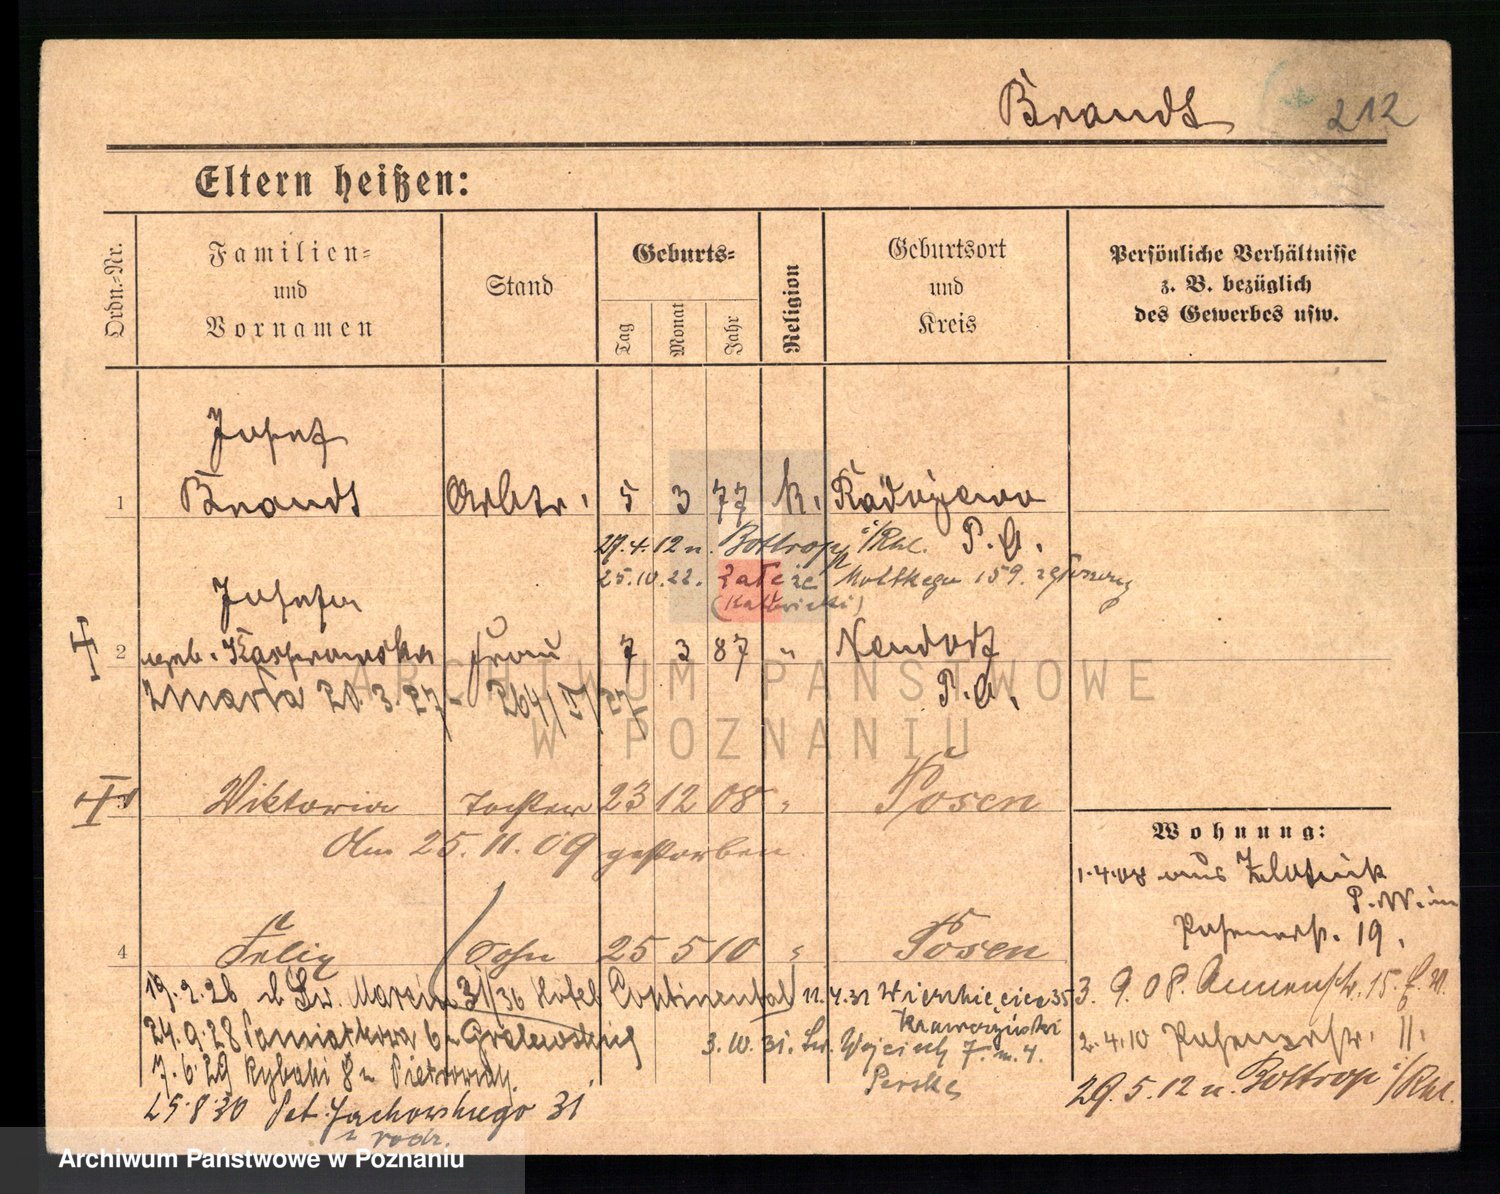 Brandt 212
Eltern heißen:
Ordn.-Nr.
Familien-
und
Vornamen
Stand
Geburts-
Tag
Monat
Jahr
Religion
Geburtsort
und
Kreis
Persönliche Verhältnisse
z. B. bezüglich
des Gewerbes usw.
Josef
1 Brandt Arbtr. 5 3 77 k. Radojewo
P. O.
29.4.12 n. Bottrop i/Rhl.
25.10.22. Załęże Moltkego 159.
(Katowicki)
Josefa
2 geb. Kasprowska Frau 7 3 87 " Neudorf
P. O.
Zmarła 20.3.27 - 264/II/27
ARCHIWUM PAŃSTWOWE
W POZNANIU
Viktoria Tochter 23 12 08 " Posen
Am 25.11.09 gestorben.
4 Felix Sohn 25 5 10 " Posen
Wohnung:
1.4.08 aus Zlotnik
P. W. in
Posenerstr. 19.
3.9.08. Annenstr. 15.
2.4.10 Posenerstr. 11.
29.5.12 n. Bottrop i/Rhl.
19.2.26 Św. Marcin 31/36 Hotel Continental 11.4.32 Wierzbięcice 35
24.9.28 6 3.10.31. Św. Wojciech 7. m. 4.
7.6.29 Rybaki 8
25.8.30 Pat. Jackowskiego 31
z rodz.
Archiwum Państwowe w Poznaniu